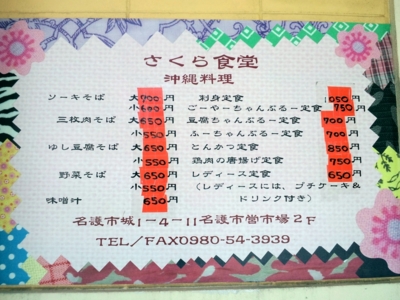 さくら食堂
沖縄料理
ソーキそば 大700円 刺身定食 1050円
小600円 ごーやーちゃんぷるー定食 750円
三枚肉そば 大650円 豆腐ちゃんぷるー定食 700円
小550円 ふーちゃんぷるー定食 700円
ゆし豆腐そば 大650円 とんかつ定食 850円
小550円 鶏肉の唐揚げ定食 750円
野菜そば 大650円 レディース定食 650円
小550円 (レディースには、プチケーキ&
味噌汁 650円 ドリンク付き)
名護市城1-4-11名護市営市場2F
TEL/FAX0980-54-3939